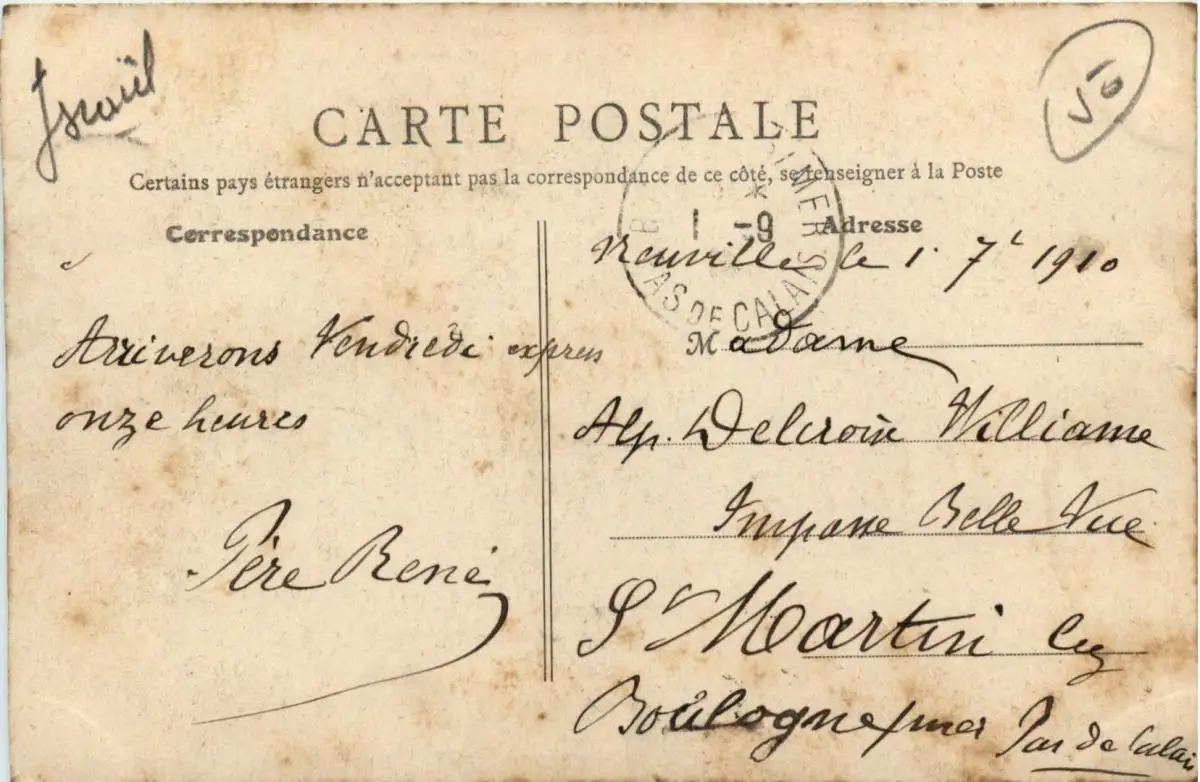 CARTE POSTALE
Certains pays étrangers n'acceptant pas la correspondance de ce côté, se renseigner à la Poste
Correspondance
Arriverons Vendredi expres
onze heures
Père René
Adresse
Neuville le 1 7bre 1910
1 -9
PAS DE CALAIS
Madame
Alp. Delcroix Williame
Impasse Belle Vue
St Martin lez
Boulogne s/mer Pas de Calais